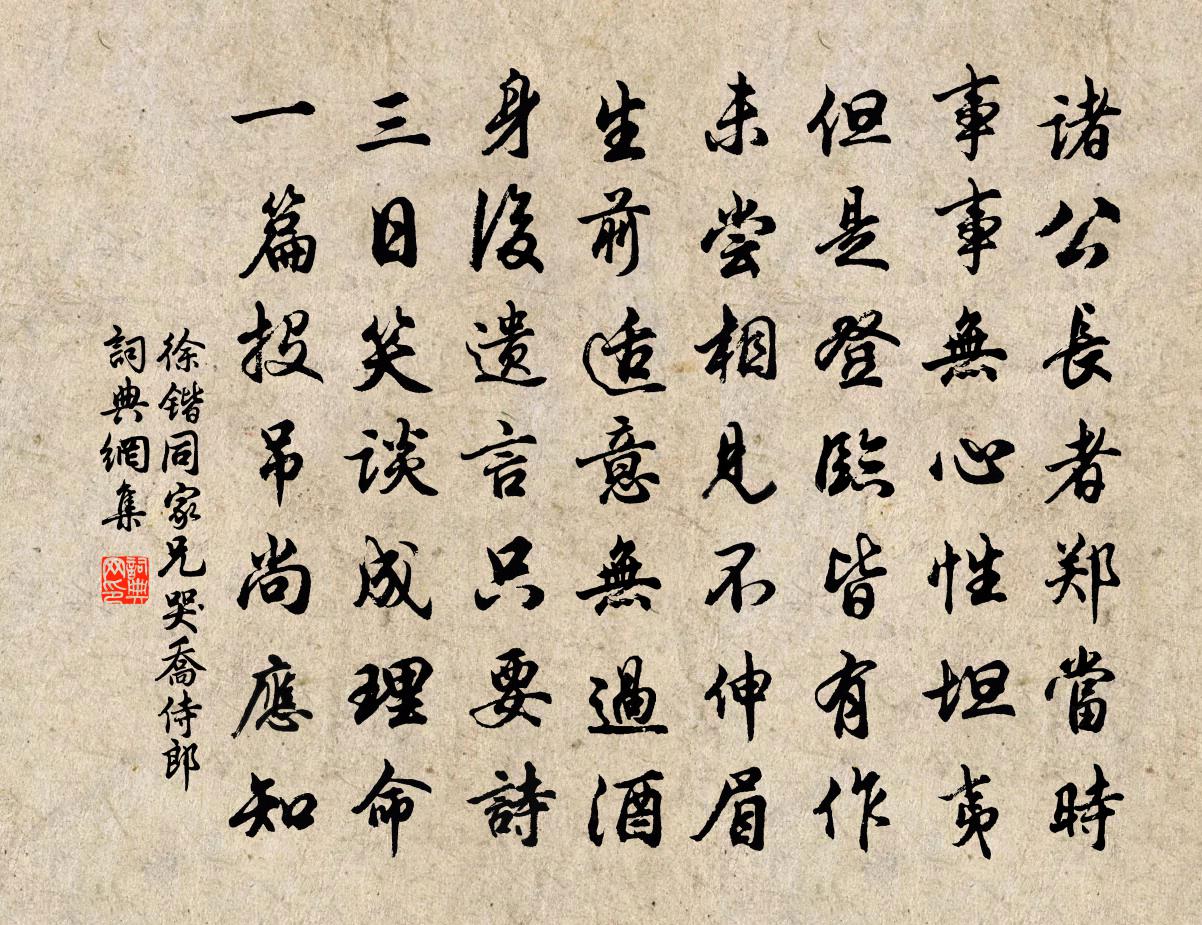 诸公長者郑當時
事事無心性坦夷
但是登臨皆有作
未尝相見不伸眉
生前适意無過酒
身後遗言只要詩
三日笑谈成理命
一篇投吊尚應知
徐锴同家兄哭喬侍郎
詞典網集
詞典网印